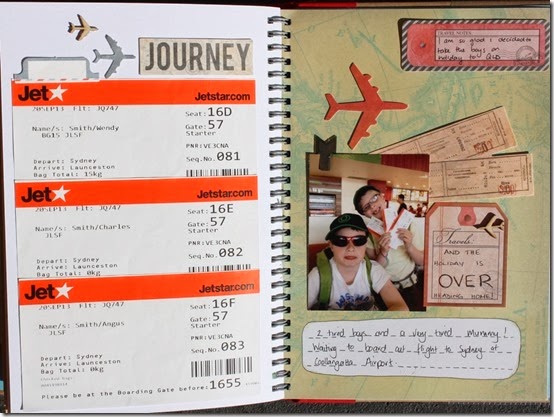 JOURNEY
Jet
Jetstar.com
20SEP13 Flt: JQ747
Seat: 16D
Gate: 57
Starter
Name/s: Smith/Wendy
BG1S JLSF
PNR: VE3CNA
Seq.No. 081
Depart: Sydney
Arrive: Launceston
Bag Total: 15kg
Jet
Jetstar.com
20SEP13 Flt: JQ747
Seat: 16E
Gate: 57
Starter
Name/s: Smith/Charles
JLSF
PNR: VE3CNA
Seq.No. 082
Depart: Sydney
Arrive: Launceston
Bag Total: 0kg
Jet
Jetstar.com
20SEP13 Flt: JQ747
Seat: 16F
Gate: 57
Starter
Name/s: Smith/Angus
JLSF
PNR: VE3CNA
Seq.No. 083
Depart: Sydney
Arrive: Launceston
Bag Total: 0kg
Please be at the Boarding Gate before: 1655
TRAVEL NOTES:
I am so glad I decided to
take the boys on
holiday to QLD
Travels
AND THE
HOLIDAY IS
OVER
HEADING HOME!
2 tired boys and a very tired Mummy!
Waiting to board our flight to Sydney at
Coolangatta Airport